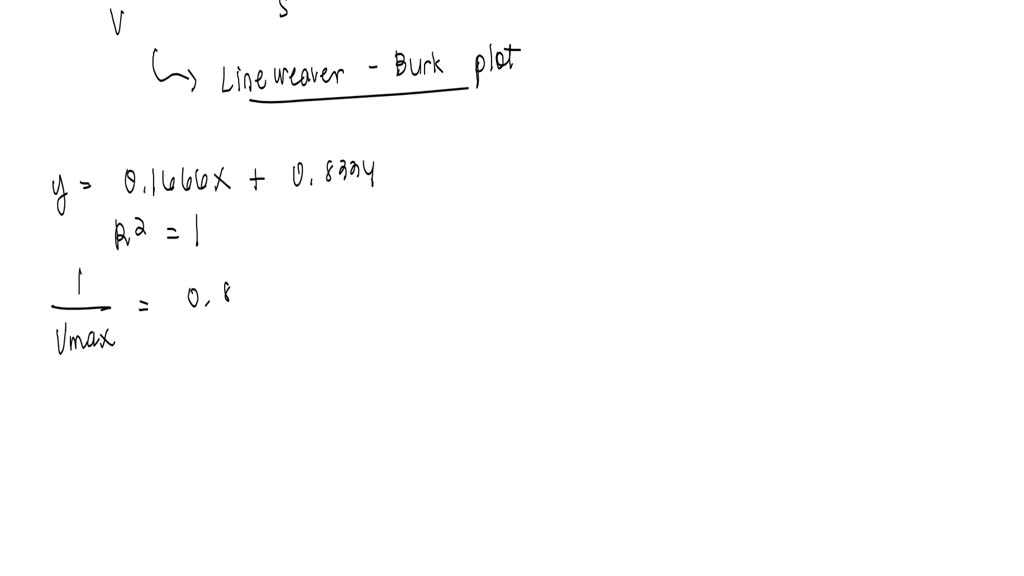 V S
↳ Lineweaver - Burk plot
y = 0.1666x + 0.8334
R² = 1
1
Vmax = 0.8